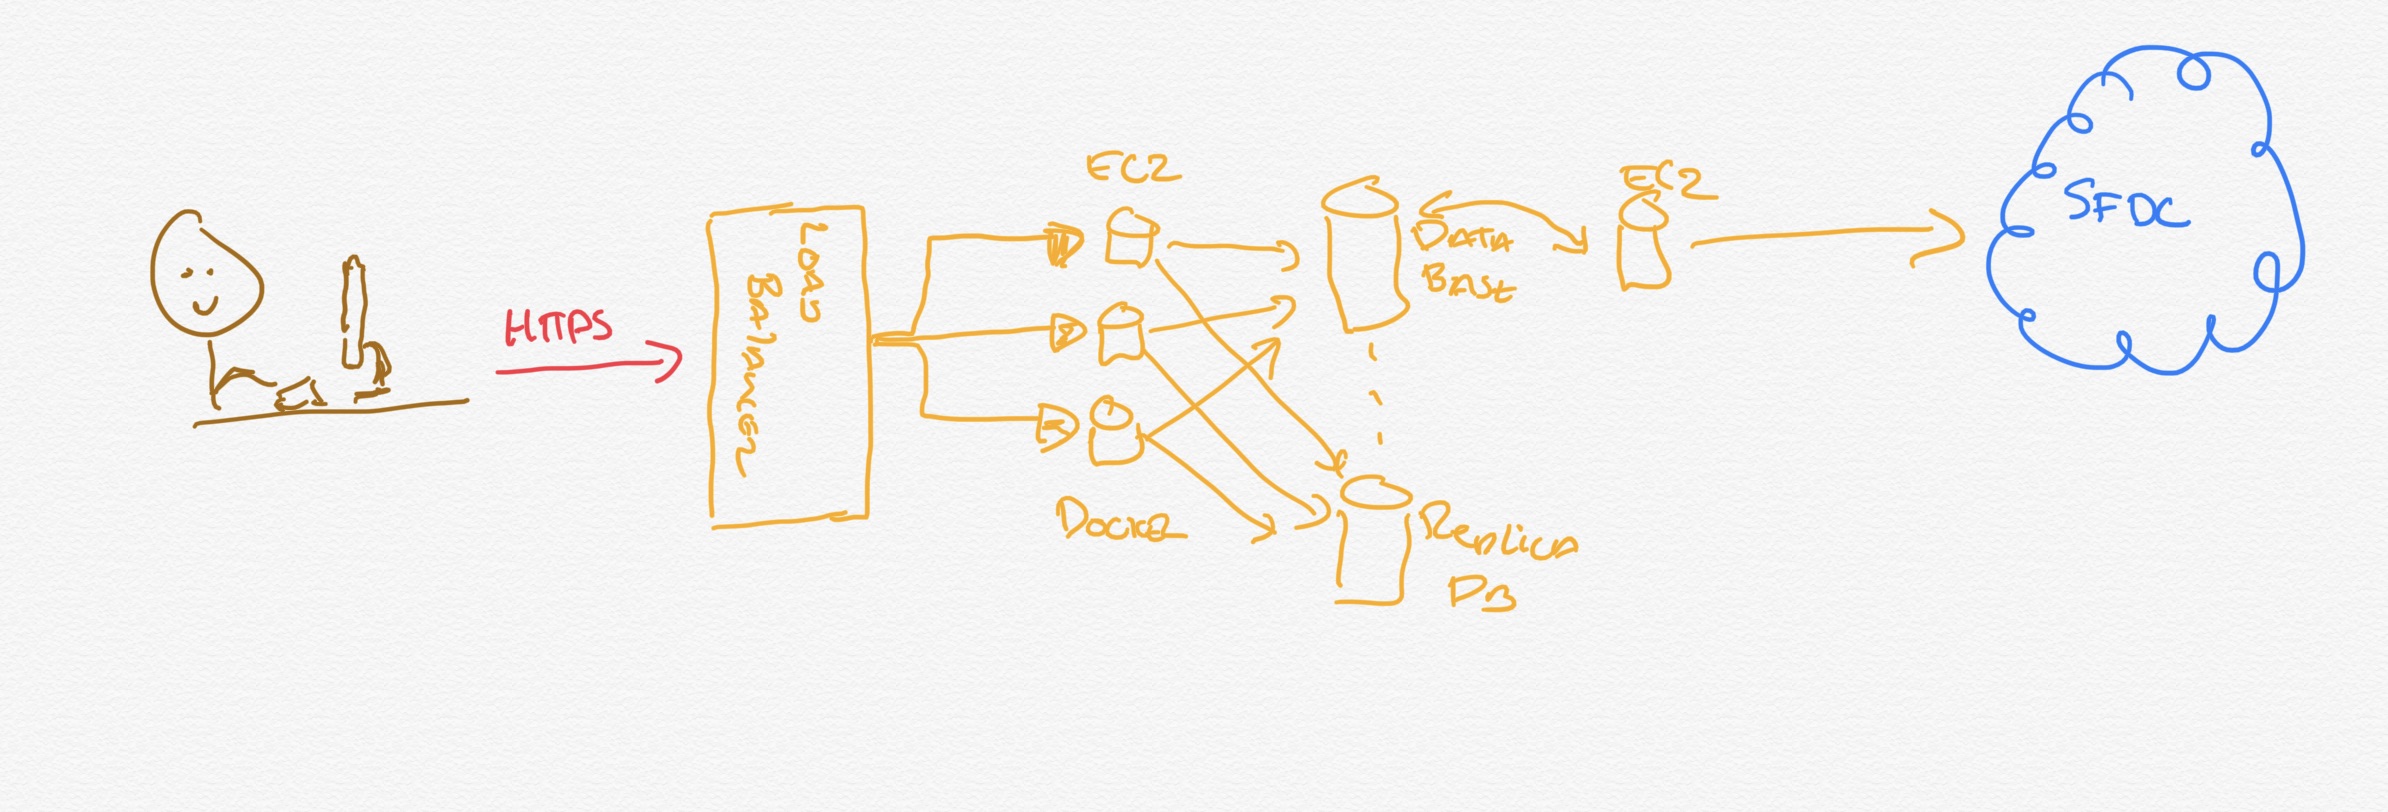 HTTPS
LOAD
BALANCER
EC2
DOCKER
DATA
BASE
REPLICA
DB
EC2
SFDC